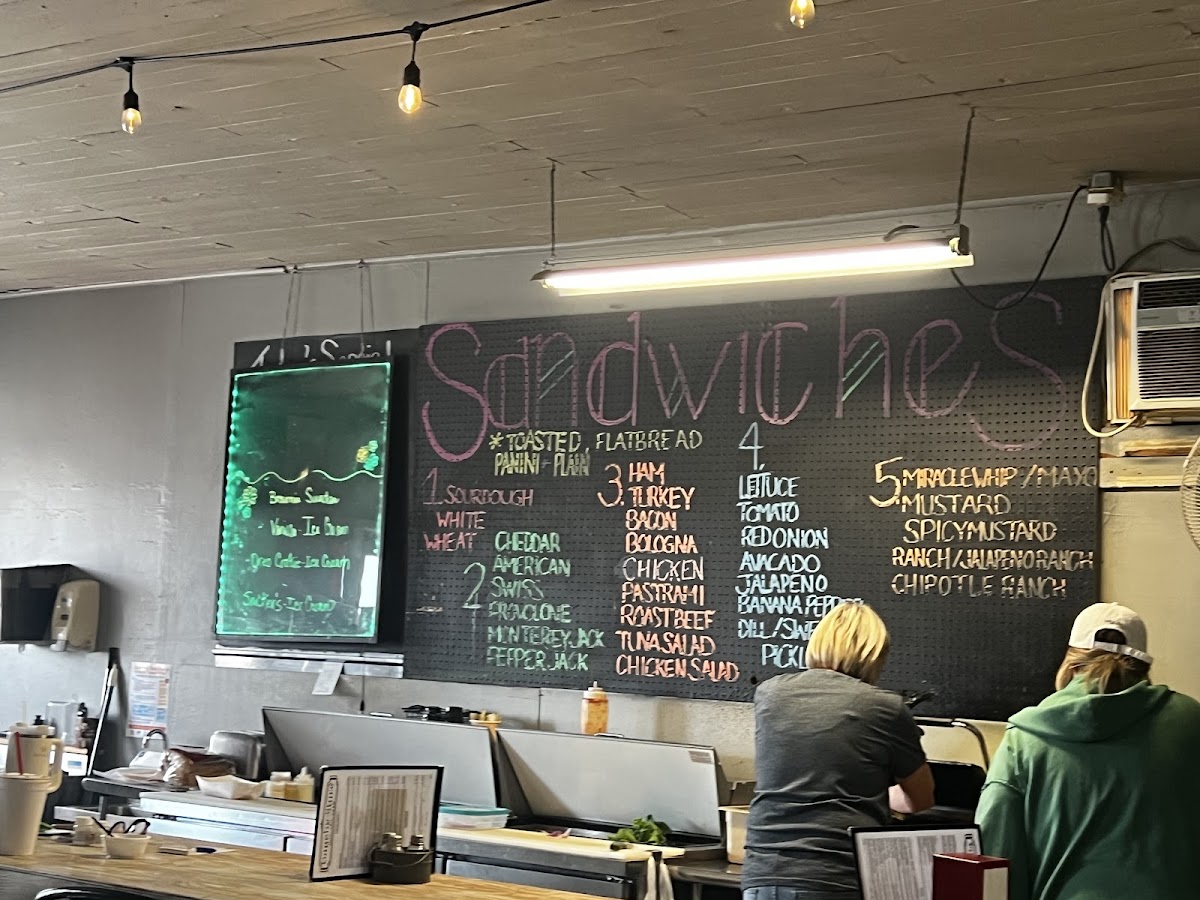 Sandwiches
*TOASTED, FLATBREAD
PANINI - PLAIN
1 SOURDOUGH
WHITE
WHEAT
2 CHEDDAR
AMERICAN
SWISS
PROVOLONE
MONTEREY JACK
PEPPER JACK
3. HAM
TURKEY
BACON
BOLOGNA
CHICKEN
PASTRAMI
ROAST BEEF
TUNA SALAD
CHICKEN SALAD
4.
LETTUCE
TOMATO
RED ONION
AVACADO
JALAPENO
BANANA PEPPER
DILL/SWE
PICKL
5. MIRACLE WHIP / MAYO
MUSTARD
SPICY MUSTARD
RANCH/JALAPENO RANCH
CHIPOTLE RANCH
Brownie Sundae
Vanilla-Ice Cream
-Oreo Cookie-Ice Cream